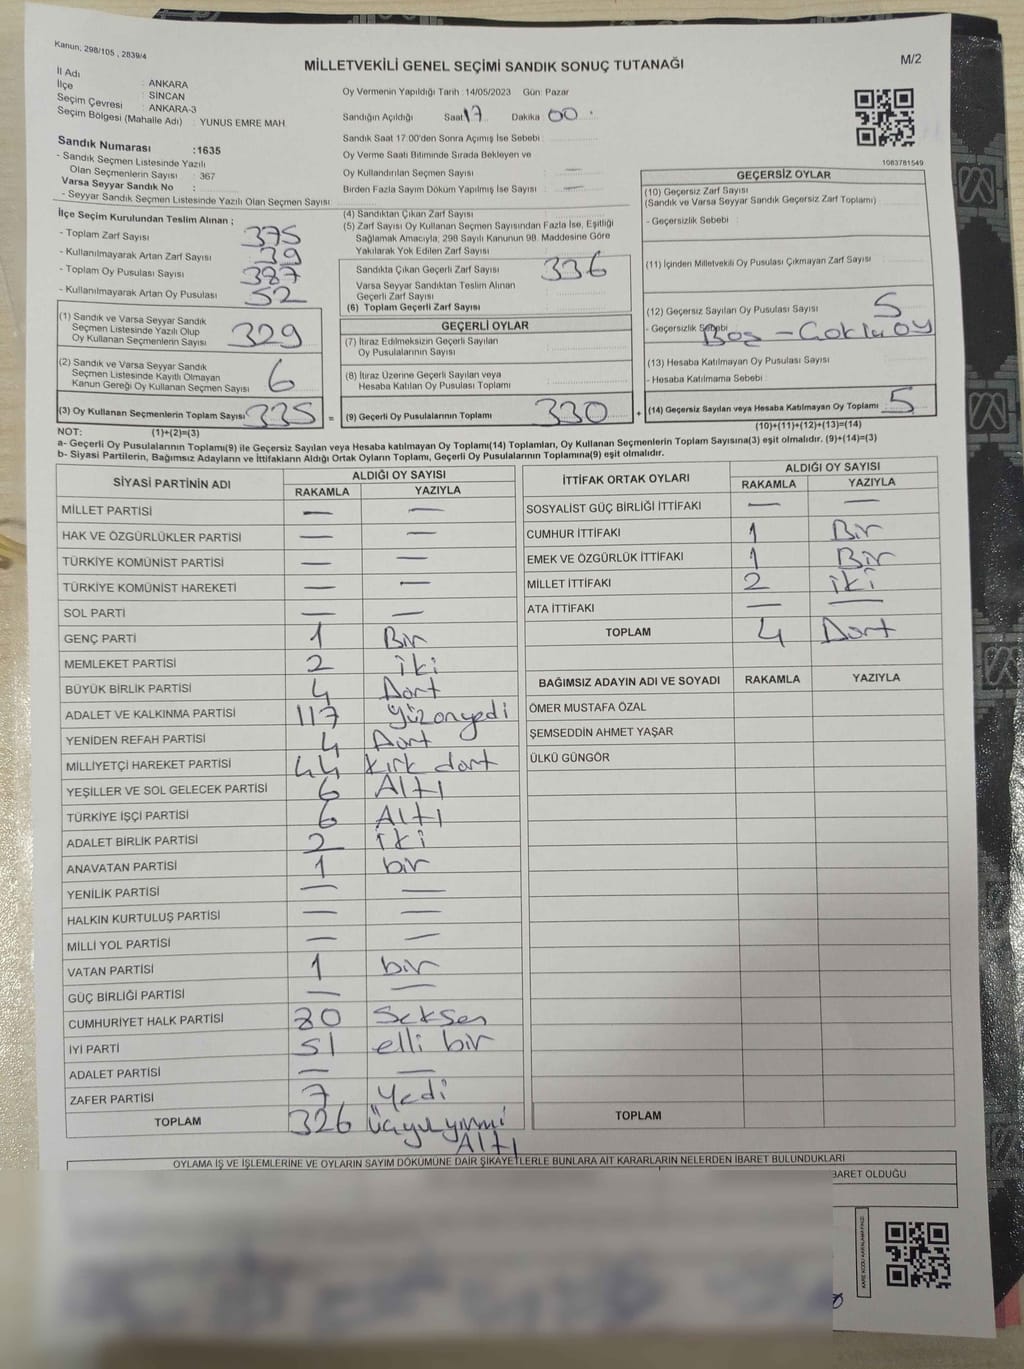 Kanun, 298/105 , 2839/4
MİLLETVEKİLİ GENEL SEÇİMİ SANDIK SONUÇ TUTANAĞI
M/2
İl Adı : ANKARA
İlçe : SİNCAN
Seçim Çevresi : ANKARA-3
Seçim Bölgesi (Mahalle Adı) : YUNUS EMRE MAH.
Sandık Numarası :1635
- Sandık Seçmen Listesinde Yazılı
Olan Seçmenlerin Sayısı : 367
Varsa Seyyar Sandık No :
- Seyyar Seçmen Listesinde Yazılı Olan Seçmen Sayısı
Oy Vermenin Yapıldığı Tarih :14/05/2023 Gün: Pazar
Sandığın Açıldığı Saat 17 Dakika 00
Sandık Saat 17.00'den Sonra Açımış İse Sebebi :
Oy Verme Saati Bitiminde Sırada Bekleyen ve
Oy Kullandırılan Seçmen Sayısı : —
Birden Fazla Sayım Döküm Yapılmış İse Sayısı : —
1083781549
İlçe Seçim Kurulundan Teslim Alınan ;
- Toplam Zarf Sayısı 375
- Kullanılmayarak Artan Zarf Sayısı 39
- Toplam Oy Pusulası Sayısı 387
- Kullanılmayarak Artan Oy Pusulası 52
(1) Sandık ve Varsa Seyyar Sandık
Seçmen Listesinde Yazılı Olup
Oy Kullanan Seçmenlerin Sayısı 329
(2) Sandık ve Varsa Seyyar Sandık
Seçmen Listesinde Kayıtlı Olmayan
Kanun Gereği Oy Kullanan Seçmen Sayısı 6
(3) Oy Kullanan Seçmenlerin Toplam Sayısı 335 =
(4) Sandıktan Çıkan Zarf Sayısı
(5) Zarf Sayısı Oy Kullanan Seçmen Sayısından Fazla İse, Eşitliği
Sağlamak Amacıyla, 298 Sayılı Kanunun 98. Maddesine Göre
Yakılarak Yok Edilen Zarf Sayısı
Sandıkta Çıkan Geçerli Zarf Sayısı 336
Varsa Seyyar Sandıktan Teslim Alınan
Geçerli Zarf Sayısı
(6) Toplam Geçerli Zarf Sayısı
GEÇERLİ OYLAR
(7) İtiraz Edilmeksizin Geçerli Sayılan
Oy Pusulalarının Sayısı
(8) İtiraz Üzerine Geçerli Sayılan veya
Hesaba Katılan Oy Pusulası Toplamı
(9) Geçerli Oy Pusulalarının Toplamı 330 +
GEÇERSİZ OYLAR
(10) Geçersiz Zarf Sayısı
(Sandık ve Varsa Seyyar Sandık Geçersiz Zarf Toplamı)
- Geçersizlik Sebebi :
(11) İçinden Milletvekili Oy Pusulası Çıkmayan Zarf Sayısı
(12) Geçersiz Sayılan Oy Pusulası Sayısı 5
- Geçersizlik Sebebi Boş - Çoklu oy
(13) Hesaba Katılmayan Oy Pusulası Sayısı
- Hesaba Katılmama Sebebi :
(14) Geçersiz Sayılan veya Hesaba Katılmayan Oy Toplamı 5
NOT: (1)+(2)=(3)
(10)+(11)+(12)+(13)=(14)
a- Geçerli Oy Pusulalarının Toplamı(9) ile Geçersiz Sayılan veya Hesaba katılmayan Oy Toplamı(14) Toplamları, Oy Kullanan Seçmenlerin Toplam Sayısına(3) eşit olmalıdır. (9)+(14)=(3)
b- Siyasi Partilerin, Bağımsız Adayların ve İttifakların Aldığı Ortak Oyların Toplamı, Geçerli Oy Pusulalarının Toplamına(9) eşit olmalıdır.
SİYASİ PARTİNİN ADI ALDIĞI OY SAYISI
RAKAMLA YAZIYLA
MİLLET PARTİSİ — —
HAK VE ÖZGÜRLÜKLER PARTİSİ — —
TÜRKİYE KOMÜNİST PARTİSİ — —
TÜRKİYE KOMÜNİST HAREKETİ — —
SOL PARTİ — —
GENÇ PARTİ 1 Bir
MEMLEKET PARTİSİ 2 iki
BÜYÜK BİRLİK PARTİSİ 4 Dört
ADALET VE KALKINMA PARTİSİ 117 yüzonyedi
YENİDEN REFAH PARTİSİ 4 Dört
MİLLİYETÇİ HAREKET PARTİSİ 44 kırk dört
YEŞİLLER VE SOL GELECEK PARTİSİ 6 Altı
TÜRKİYE İŞÇİ PARTİSİ 6 Altı
ADALET BİRLİK PARTİSİ 2 iki
ANAVATAN PARTİSİ 1 bir
YENİLİK PARTİSİ — —
HALKIN KURTULUŞ PARTİSİ — —
MİLLİ YOL PARTİSİ — —
VATAN PARTİSİ 1 bir
GÜÇ BİRLİĞİ PARTİSİ — —
CUMHURİYET HALK PARTİSİ 80 Seksen
İYİ PARTİ 51 elli bir
ADALET PARTİSİ — —
ZAFER PARTİSİ 7 Yedi
TOPLAM 326 üçyüzyirmi
Altı
İTTİFAK ORTAK OYLARI ALDIĞI OY SAYISI
RAKAMLA YAZIYLA
SOSYALİST GÜÇ BİRLİĞİ İTTİFAKI — —
CUMHUR İTTİFAKI 1 Bir
EMEK VE ÖZGÜRLÜK İTTİFAKI 1 Bir
MİLLET İTTİFAKI 2 iki
ATA İTTİFAKI — —
TOPLAM 4 Dört
BAĞIMSIZ ADAYIN ADI VE SOYADI RAKAMLA YAZIYLA
ÖMER MUSTAFA ÖZAL
ŞEMSEDDİN AHMET YAŞAR
ÜLKÜ GÜNGÖR
TOPLAM
OYLAMA İŞ VE İŞLEMLERİNE VE OYLARIN SAYIM DÖKÜMÜNE DAİR ŞİKAYETLERLE BUNLARA AİT KARARLARIN NELERDEN İBARET BULUNDUKLARI
BARET OLDUĞU